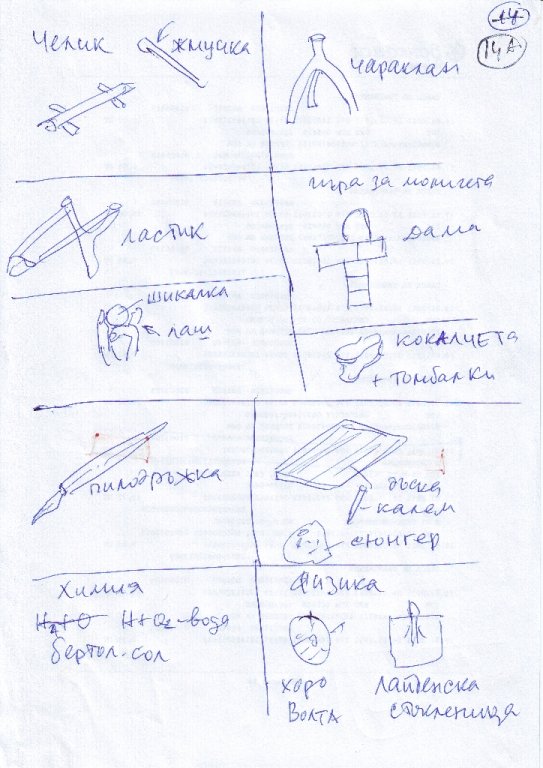 14
14А
Челик
жмичка
чараклан
ластик
игра за момичета
дама
шикалка
лаш
кокалчета
+ томбалки
пилодръжка
дъска
калем
сюнгер
Химия
H₂+O H+O₂-вода
бертол. сол
Физика
хоро
Волта
лайденска
стъкленица